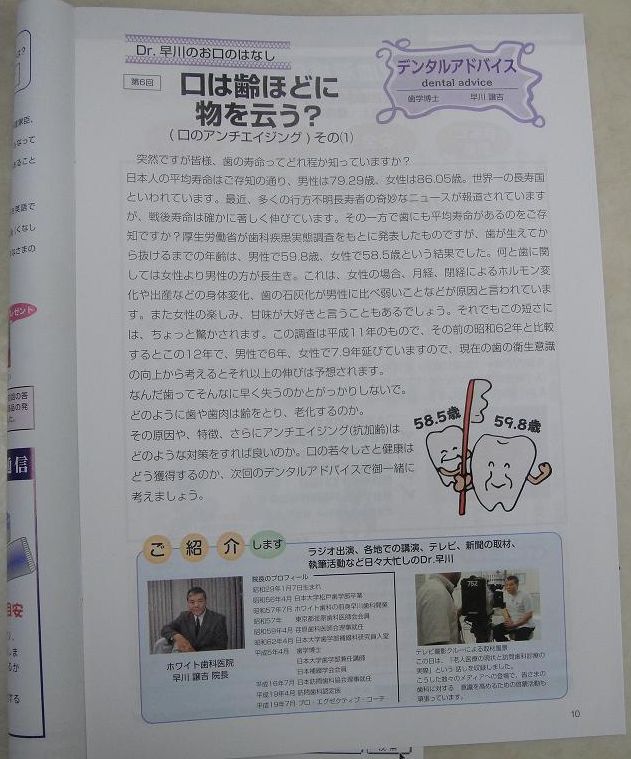 Dr. 早川のお口のはなし
第6回
口は齢ほどに
物を云う?
(口のアンチエイジング) その(1)
デンタルアドバイス
dental advice
歯学博士 早川 譲吉
突然ですが皆様、歯の寿命ってどれ程か知っていますか?
日本人の平均寿命はご存知の通り、男性は79.29歳、女性は86.05歳。世界一の長寿国
といわれています。最近、多くの行方不明長寿者の奇妙なニュースが報道されています
が、戦後寿命は確かに著しく伸びています。その一方で歯にも平均寿命があるのをご存
知ですか?厚生労働省が歯科疾患実態調査をもとに発表したものですが、歯が生えてか
ら抜けるまでの年齢は、男性で59.8歳、女性で58.5歳という結果でした。何と歯に関
しては女性より男性の方が長生き。これは、女性の場合、月経、閉経によるホルモン変
化や出産などの身体変化、歯の石灰化が男性に比べ弱いことなどが原因と言われていま
す。また女性の楽しみ、甘味が大好きと言うこともあるでしょう。それでもこの短さに
は、ちょっと驚かされます。この調査は平成11年のもので、その前の昭和62年と比較
するとこの12年で、男性で6年、女性で7.9年延びていますので、現在の歯の衛生意識
の向上から考えるとそれ以上の伸びは予想されます。
なんだ歯ってそんなに早く失うのかとがっかりしないで。
どのように歯や歯肉は歳をとり、老化するのか。
その原因や、特徴、さらにアンチエイジング(抗加齢)は
どのような対策をすれば良いのか。口の若々しさと健康は
どう獲得するのか、次回のデンタルアドバイスで御一緒に
考えましょう。
58.5歳
59.8歳
ご紹介します
ラジオ出演、各地での講演、テレビ、新聞の取材、
執筆活動など日々大忙しのDr.早川
ホワイト歯科医院
早川 譲吉 院長
院長のプロフィール
昭和29年1月7日生まれ
昭和56年4月 日本大学松戸歯学部卒業
昭和57年7月 ホワイト歯科の前身早川歯科開業
昭和57年 東京都荏原歯科医師会会員
昭和59年4月 荏原歯科医師会理事就任
昭和62年4月 日本大学歯学部補綴科研究員入室
平成5年4月 歯学博士
日本大学歯学部兼任講師
日本補綴学会会員
平成16年7月 日本訪問歯科協会理事就任
平成19年4月 訪問歯科認定医
平成19年7月 プロ・エグゼクティブ・コーチ
752
テレビ撮影クルーによる取材風景
この日は、「老人医療の現状と訪問歯科診療の
実際」という 話しを収録しました。
こうした数々のメディアへの登場で、皆さまの
歯科に対する 意識を高めるための啓蒙活動も
頑張っています。
10